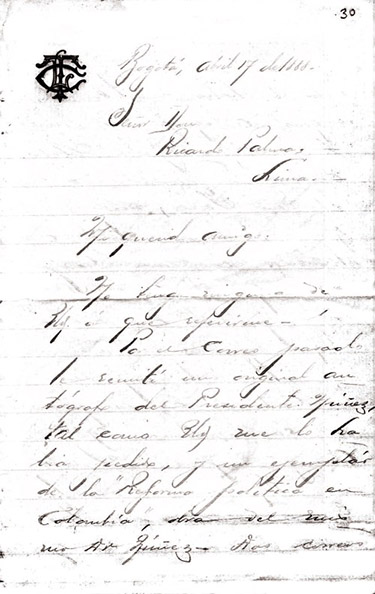 30
Bogotá, abril 17 de 1888.
Señor Don
Ricardo Palma. –
Lima. –
Mi querido amigo:
No tengo ninguna de
Ud. á que referirme. –
Por el correo pasado
le remití un original au
tógrafo del Presidente Núñez,
tal como Ud. me lo ha
bía pedido, y un ejemplar
de la "Reforma política en
Colombia", obra del mis
mo Dr. Núñez. Dos correos